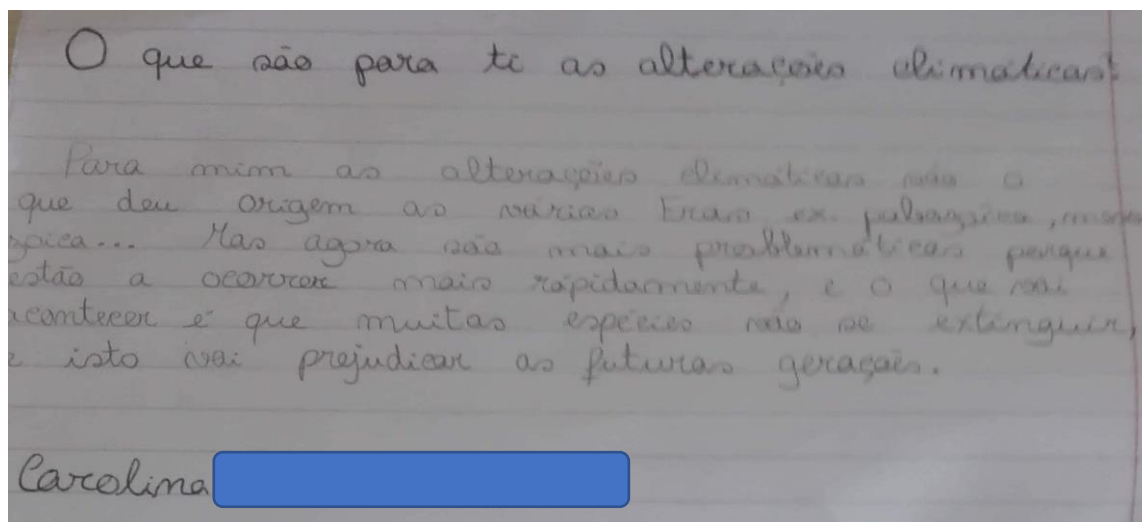 O que são para ti as alterações climáticas?
Para mim as alterações climáticas são o
que deu origem as várias Eras ex.
Mas agora são mais problemáticas porque
estão a ocorrer mais rápidamente, e o que vai
acontecer é que muitas espécies vão se extinguir,
e isto vai prejudicar as futuras gerações.
Carolina